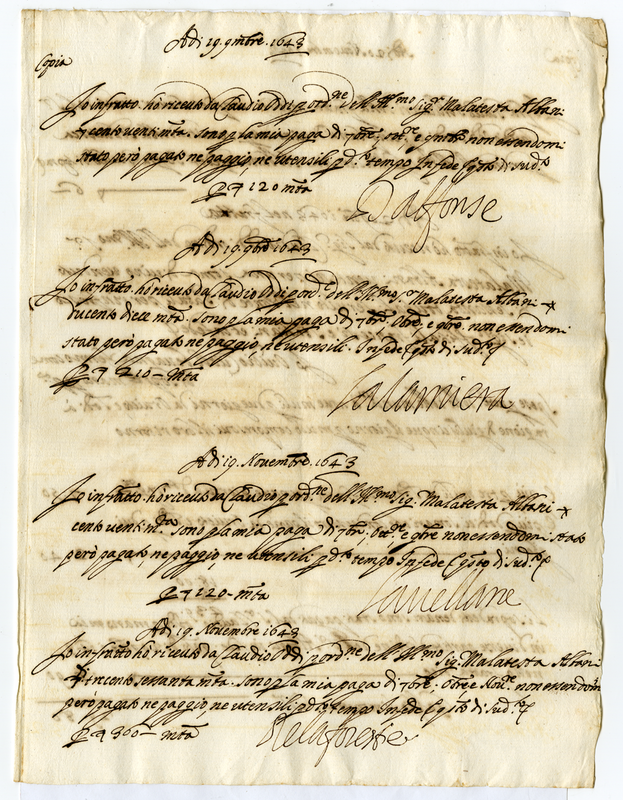 Adi 19. 9mbre. 1643
Copia
Io infratto. hò riceuto da Claudio Oddi p ord.ne dell Ill.mo Sig.r Malatesta Albani
cento uenti mta. sono p la mia paga di 7bre, ott.e, e 9mbre non essendomi
stato però pagato ne paggio, ne utensili p d.o tempo In fede q.to dì sud.o
120 mta
Dalfonse
Adi 19. 9bre 1643
Io infratto. hò riceuto da Claudio Oddi p ord.e dell Ill.mo S.r Malatesta Albani
ducento diece mta. sono p la mia paga di 7bre. Obre. e 9bre. non essendomi
stato però pagato ne paggio, ne utensili. In fede q.to dì sud.o
210 - mta
Lalamiera
Adi 19. Novembre. 1643
Io infratto. hò riceuto da Claudio p ord.ne dell Ill.mo Sig: Malatesta Albani
cento uenti mta sono p la mia paga di 7bre, ott.e e 9bre non essendomi stato
però pagato, ne paggio, ne utensili p d.o tempo In fede q.to dì sud.o
120 - mta
Lauellane
Adi 19. Novembre 1643
Io infratto hò riceuto da Claudio Oddi p ord.ne dell Ill.mo Sig: Malatesta Albani
mta. sono p la mia paga di 7bre. Obre e Nov.e non essendomi
però pagato, ne paggio, ne utensili p d.o tempo In fede q.to dì sud.o
300 - mta
Delaforestie